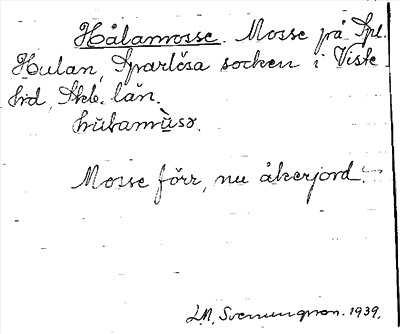 Hålamosse. Mosse på Spl.
Hulan, Sparlösa socken i Viste
hd, Skb. län.
Mosse förr, nu åkerjord.
Svenungsson. 1939.